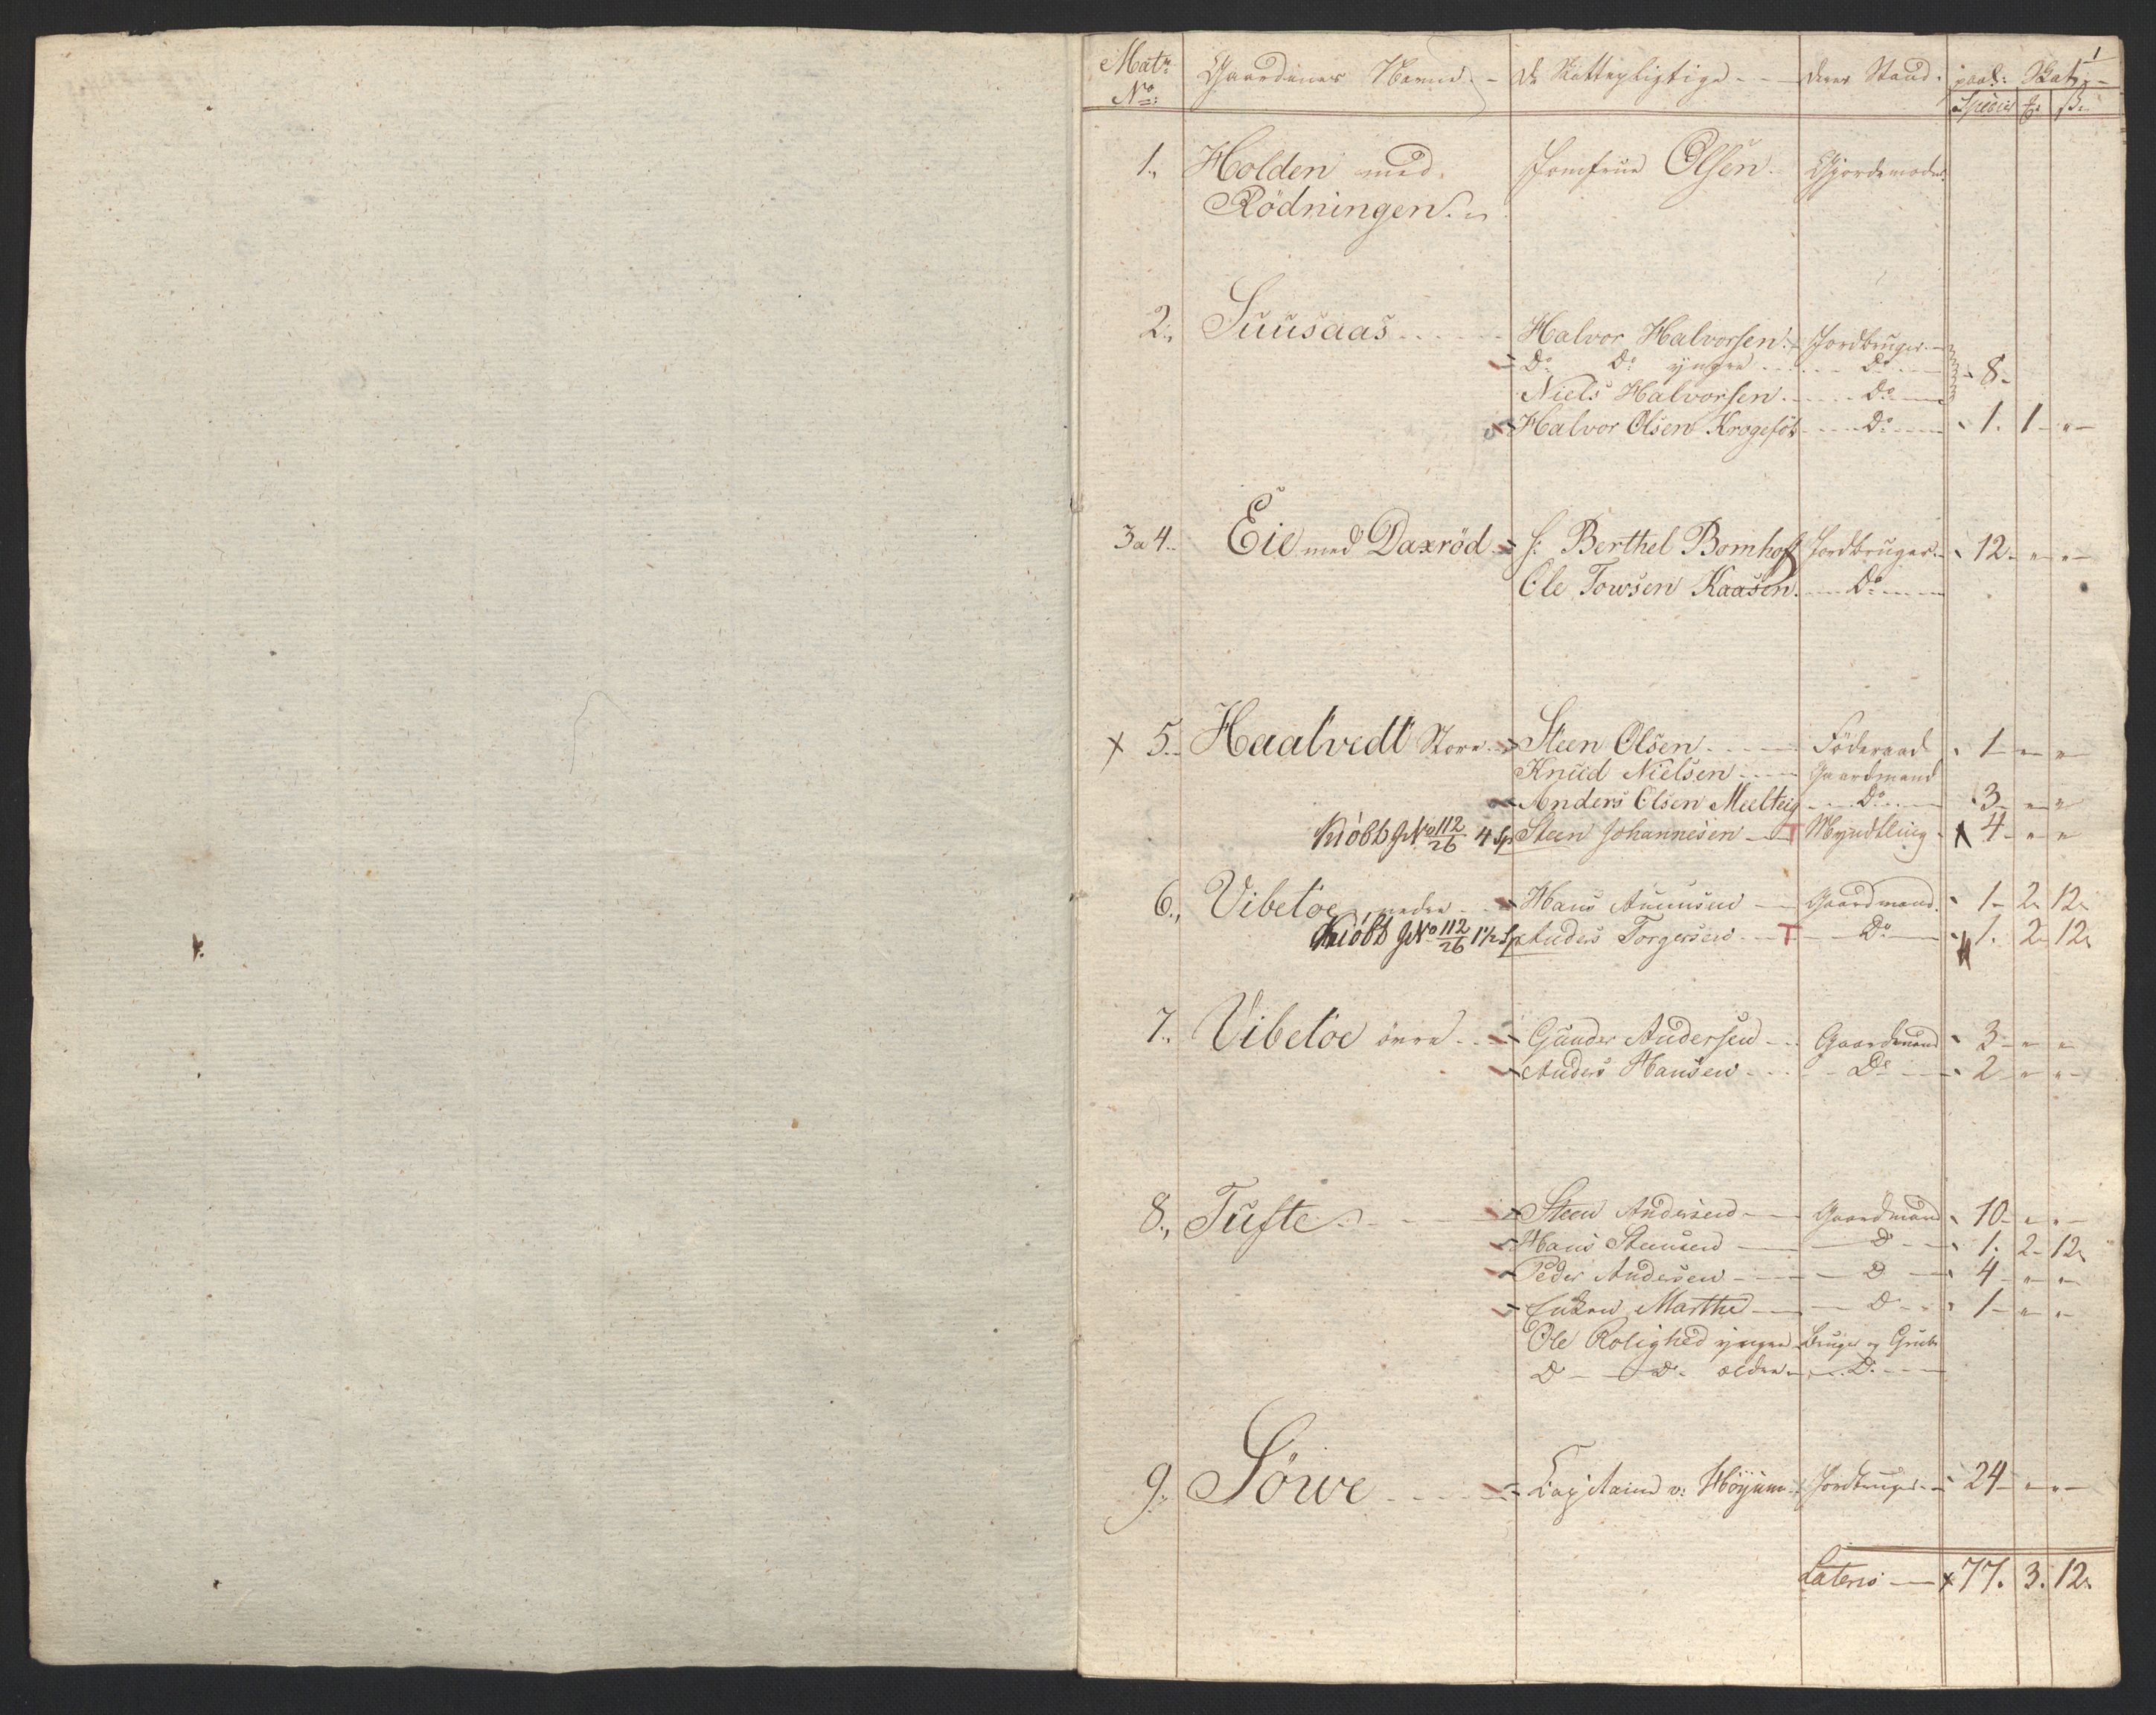 1
Matr: Gaardenes Navne. De Skattepligtige deres Stand. paal: Skat
No: Specier ß
1. Holden med Jomfrue Olsen. Gjordemoder
Rödningen.
2. Suusaas Halvor Halvorsen. Jordbruger
Do Do yngre Do 8
Niels Halvorsen. Do
Halvor Olsen Krogesöt Do 1. 1 "
3 a 4. Eie med Daxröd S: Berthel Bomhoff Jordbruger 12 " "
Ole Towsen Kaasen. Do
x 5. Haatvedt Store Steen Olsen Föderaad 1 " "
Knud Nielsen Gaardmand
Anders Olsen Meelteig Do 3 " "
Kiöbb JNo 112/26 4 Sp Steen Johannesen T Myndtling 4 " "
6. Vibetoe nedre Hans Amunsen Gaardmand. 1 2 12
Kiöbb JNo 112/26 1½ Sp Anders Torgersen T Do 1. 2 12
7. Vibetoe övre Gunder Andersen Gaardmand 3 " "
Anders Hansen Do 2 " "
8. Tufte Steen Andersen Gaardmand 10 " "
Hans Steensen D 1. 2 12
Peder Andersen D 4 " "
Enken Marthe D 1 " "
Ole Rolighed yngre Bruger og Grub
D D ældre D
9. Söwe Capitaine v: Höyum Jordbruger 24 " "
Lateris x 77. 3. 12